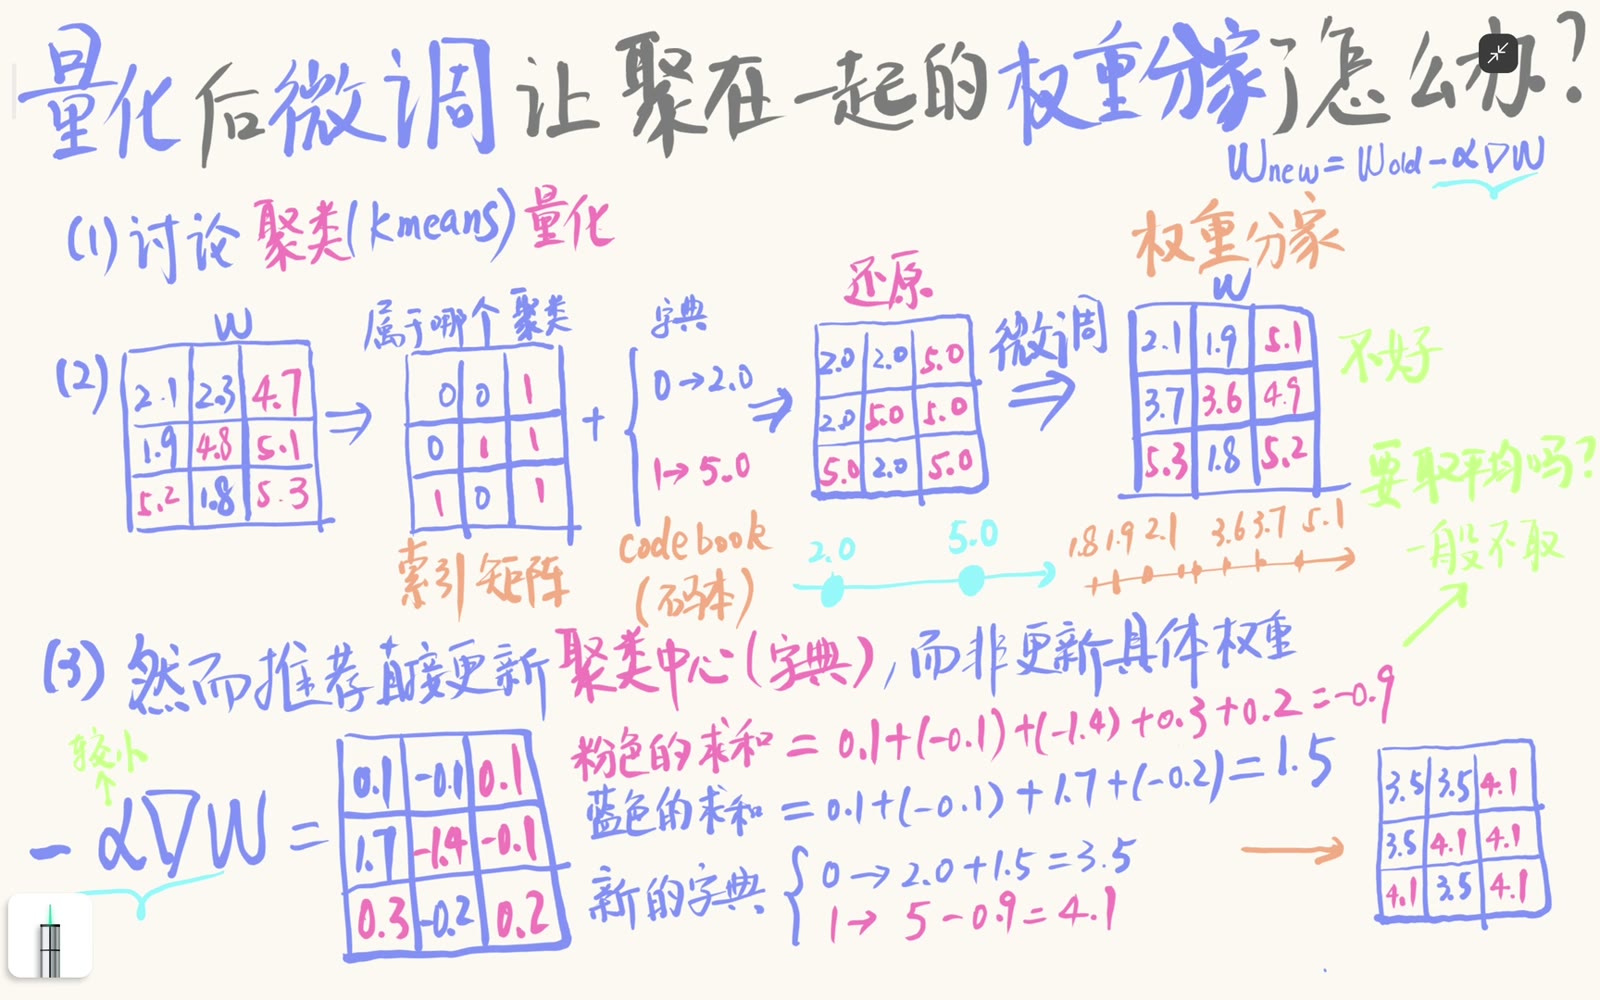 量化后微调让聚在一起的权重分家了怎么办?
Wnew = Wold - α∇W
(1) 讨论聚类(kmeans)量化
(2)
W
2.1 2.3 4.7
1.9 4.8 5.1
5.2 1.8 5.3
⇒
属于哪个聚类
0 0 1
0 1 1
1 0 1
索引矩阵
+
字典
0→2.0
1→5.0
codebook
(码本)
⇒
还原
2.0 2.0 5.0
2.0 5.0 5.0
5.0 2.0 5.0
2.0 5.0
微调
⇒
权重分家
W
2.1 1.9 5.1
3.7 3.6 4.9
5.3 1.8 5.2
1.8 1.9 2.1 3.6 3.7 5.1
不好
要取平均吗?
一般不取
(3) 然而推荐直接更新聚类中心(字典),而非更新具体权重
较小
- α∇W =
0.1 -0.1 0.1
1.7 -1.4 -0.1
0.3 -0.2 0.2
粉色的求和 = 0.1+(-0.1)+(-1.4)+0.3+0.2=-0.9
蓝色的求和 = 0.1+(-0.1)+1.7+(-0.2)=1.5
新的字典
0→2.0+1.5=3.5
1→5-0.9=4.1
3.5 3.5 4.1
3.5 4.1 4.1
4.1 3.5 4.1